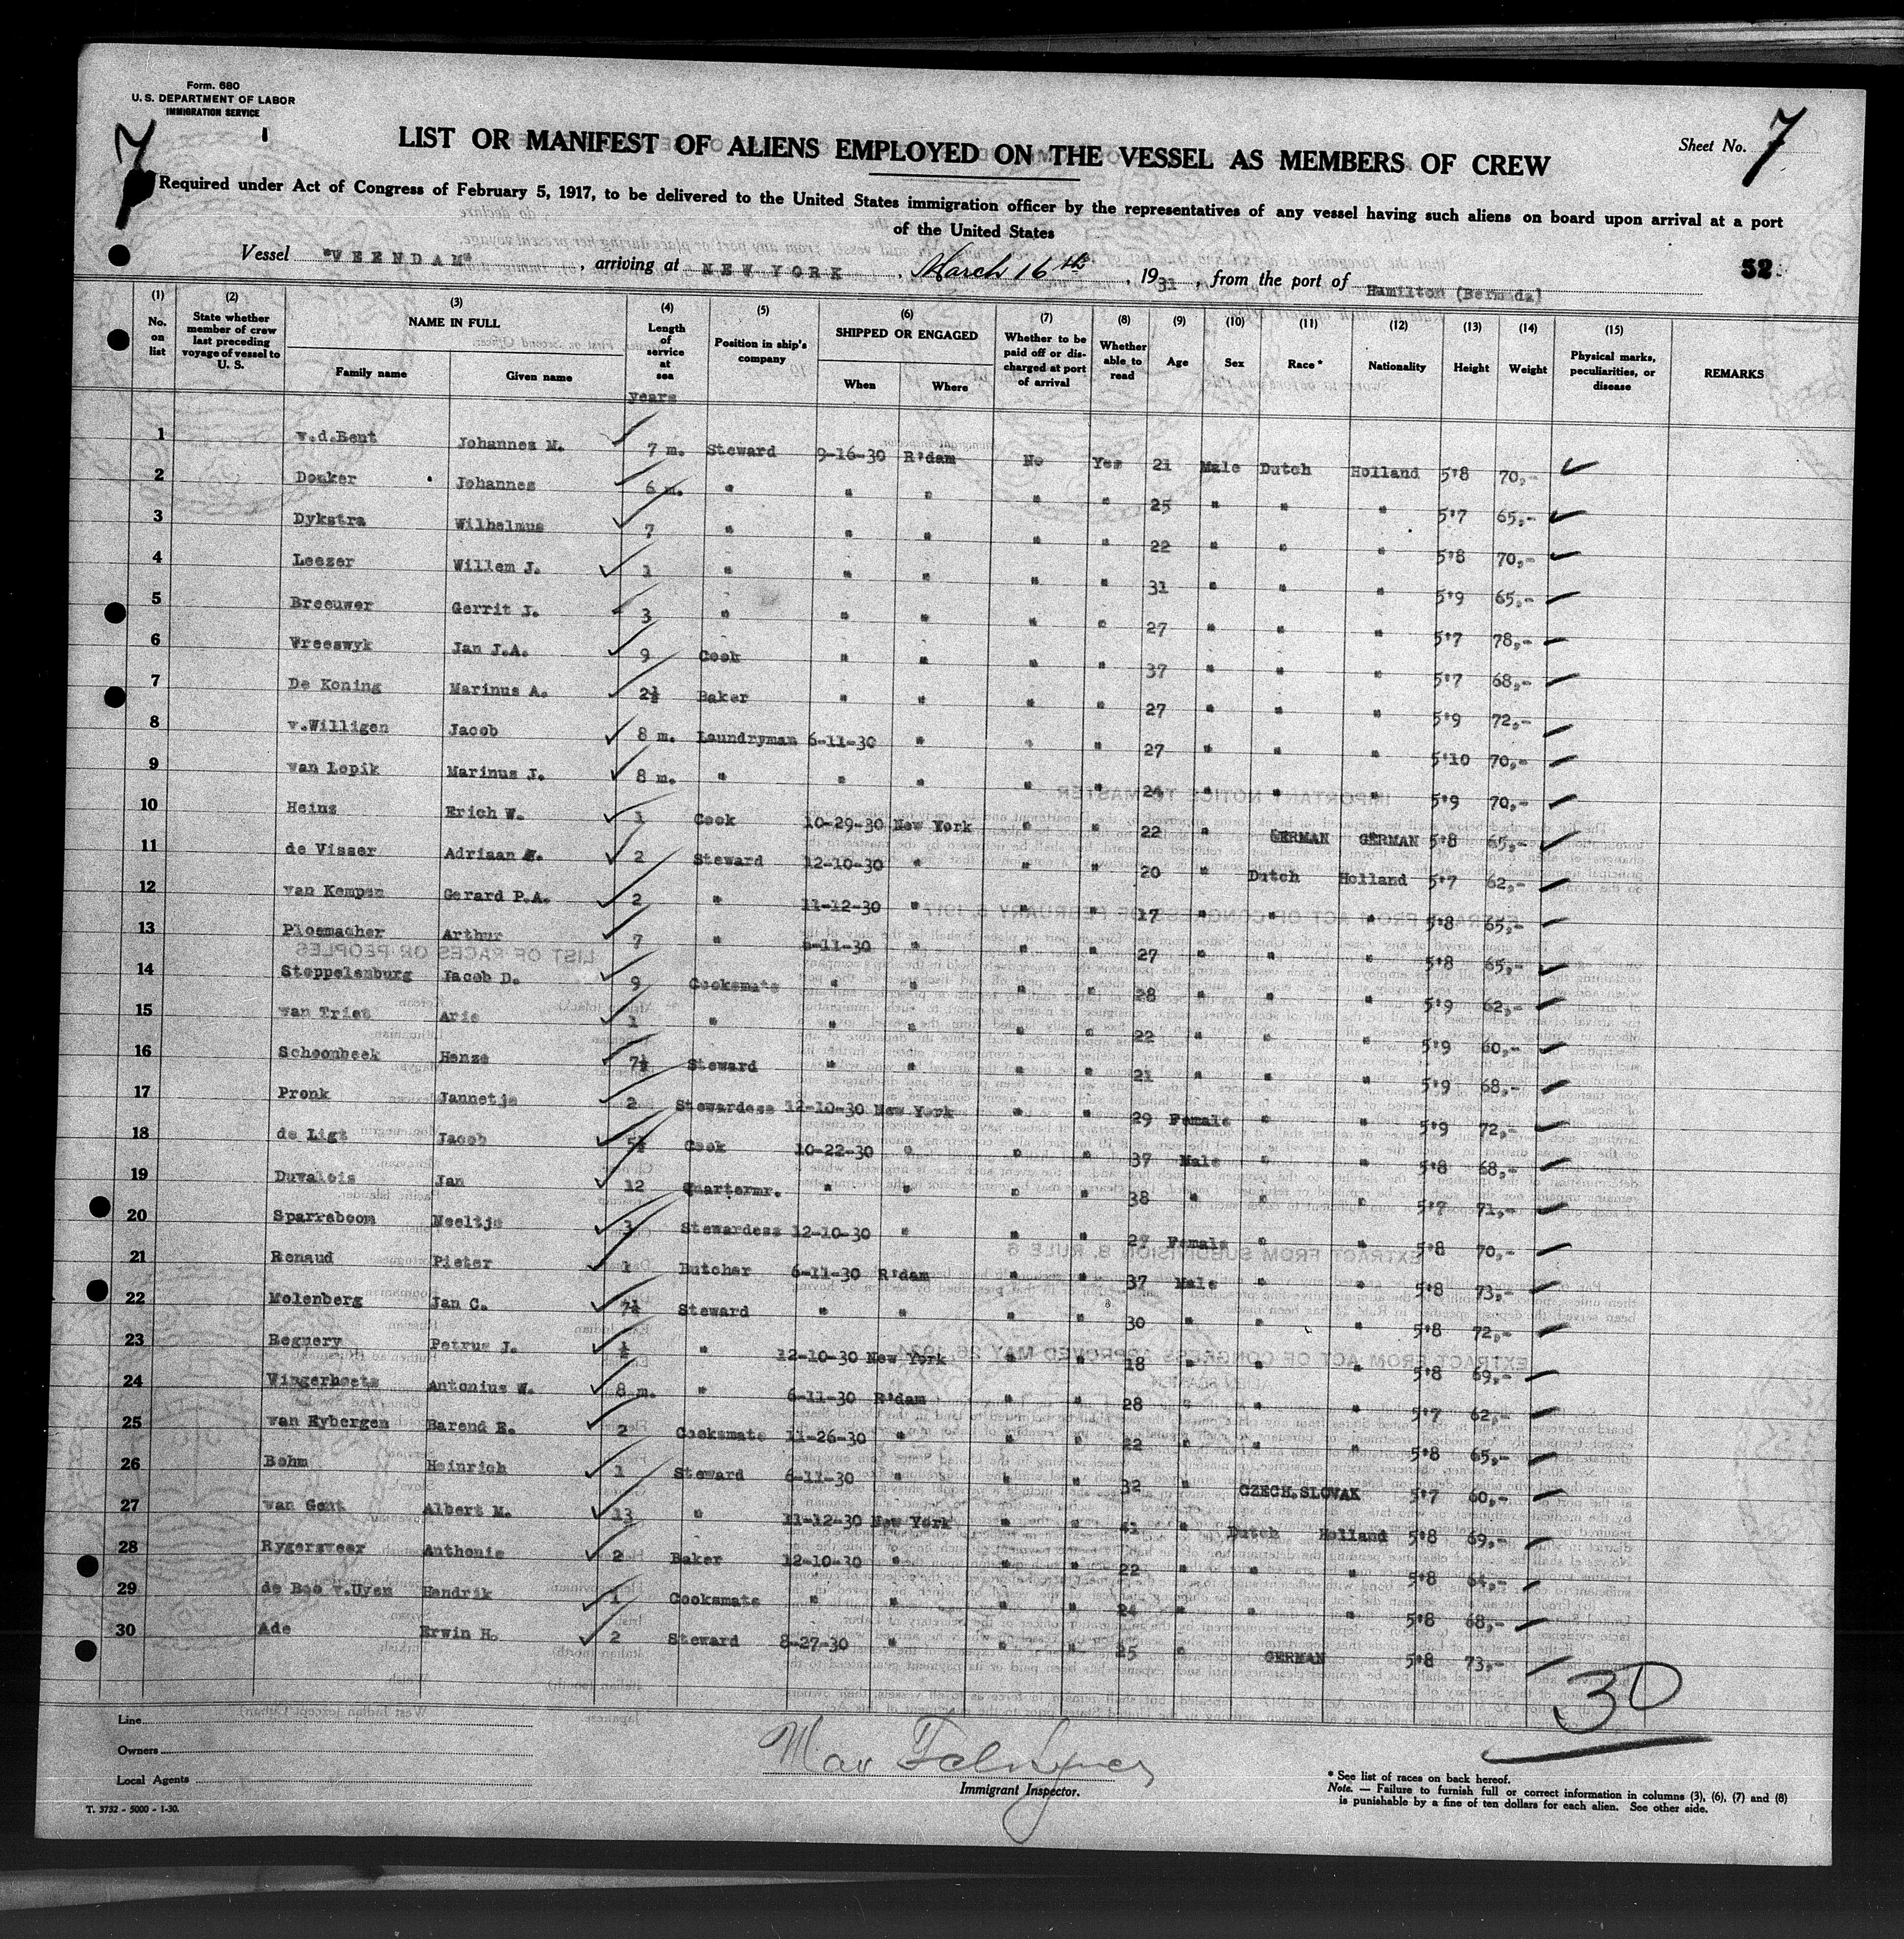 Form. 680
U. S. DEPARTMENT OF LABOR
IMMIGRATION SERVICE
7
LIST OR MANIFEST OF ALIENS EMPLOYED ON THE VESSEL AS MEMBERS OF CREW
Sheet No. 7
Required under Act of Congress of February 5, 1917, to be delivered to the United States immigration officer by the representatives of any vessel having such aliens on board upon arrival at a port
of the United States
Vessel "VEENDAM", arriving at NEW YORK, March 16th, 1931, from the port of Hamilton (Bermuda)
52
(1) No. on list (2) State whether member of crew last preceding voyage of vessel to U. S. (3) NAME IN FULL Family name Given name (4) Length of service at sea (5) Position in ship's company (6) SHIPPED OR ENGAGED When Where (7) Whether to be paid off or discharged at port of arrival (8) Whether able to read (9) Age (10) Sex (11) Race* (12) Nationality (13) Height (14) Weight (15) Physical marks, peculiarities, or disease REMARKS
years
1 v.d.Bent Johannes M. 7 m. Steward 9-16-30 R'dam No Yes 21 Male Dutch Holland 5'8 70,-
2 Donker Johannes 6 m. " " " " " 25 " " " 5'7 65,-
3 Dykstra Wilhelmus 7 " " " " " 22 " " " 5'8 70,-
4 Leezer Willem J. 1 " " " " " 31 " " " 5'9 65,-
5 Breeuwer Gerrit J. 3 " " " " " 27 " " " 5'7 78,-
6 Vreeswyk Jan J.A. 9 Cook " " " " 37 " " " 5'7 68,-
7 De Koning Marinus A. 2½ Baker " " " " 27 " " " 5'9 72,-
8 v.Willigen Jacob 8 m. Laundryman 6-11-30 " " " 27 " " " 5'10 70,-
9 van Lopik Marinus J. 8 m. " " " " " 24 " " " 5'9 70,-
10 Heinz Erich W. 1 Cook 10-29-30 New York " " 22 " GERMAN GERMAN 5'8 65,-
11 de Visser Adriaan 2 Steward 12-10-30 " " " 20 " Dutch Holland 5'7 62,-
12 van Kempen Gerard P.A. 2 " 11-12-30 " " " 17 " " " 5'8 65,-
13 Ploemacher Arthur 7 " 6-11-30 " " " 27 " " " 5'8 65,-
14 Stoppelenburg Jacob D. 9 Cooksmate " " " " 28 " " " 5'9 62,-
15 van Triet Arie 1 " " " " " 22 " " " 5'9 60,-
16 Schoonbeek Henze 7½ Steward " " " " 21 " " " 5'9 68,-
17 Pronk Jannetje 2 Stewardess 12-10-30 New York " " 29 Female " " 5'9 72,-
18 de Ligt Jacob 5½ Cook 10-22-30 " " " 37 Male " " 5'8 68,-
19 Duvalois Jan 12 Quartermr. " " " " 38 " " " 5'7 71,-
20 Sparreboom Neeltje 3 Stewardess 12-10-30 " " " 27 Female " " 5'8 70,-
21 Renaud Pieter 1 Butcher 6-11-30 R'dam " " 37 Male " " 5'8 73,-
22 Molenberg Jan C. 7½ Steward " " " " 30 " " " 5'8 72,-
23 Beguery Petrus J. ½ " 12-10-30 New York " " 18 " " " 5'8 69,-
24 Wingerhoets Antonius W. 8 m. " 6-11-30 R'dam " " 28 " " " 5'7 62,-
25 van Eybergen Barend E. 2 Cooksmate 11-26-30 " " " 22 " " " 5'8 65,-
26 Bohm Heinrich 1 Steward 6-11-30 " " " 32 " CZECH.SLOVAK 5'7 60,-
27 van Gent Albert M. 13 " 11-12-30 New York " " 41 " Dutch Holland 5'8 69,-
28 Rygersweer Anthonie 2 Baker 12-10-30 " " " 22 " " " 5'8 64,-
29 de Boo v.Uyen Hendrik 1 Cooksmate " " " " 24 " " " 5'8 68,-
30 Ade Erwin H. 2 Steward 8-27-30 " " " 25 " GERMAN 5'8 73,-
30
Line
Owners
Local Agents
Immigrant Inspector.
T. 3732 - 5000 - 1-30.
* See list of races on back hereof.
Note. — Failure to furnish full or correct information in columns (3), (6), (7) and (8)
is punishable by a fine of ten dollars for each alien. See other side.